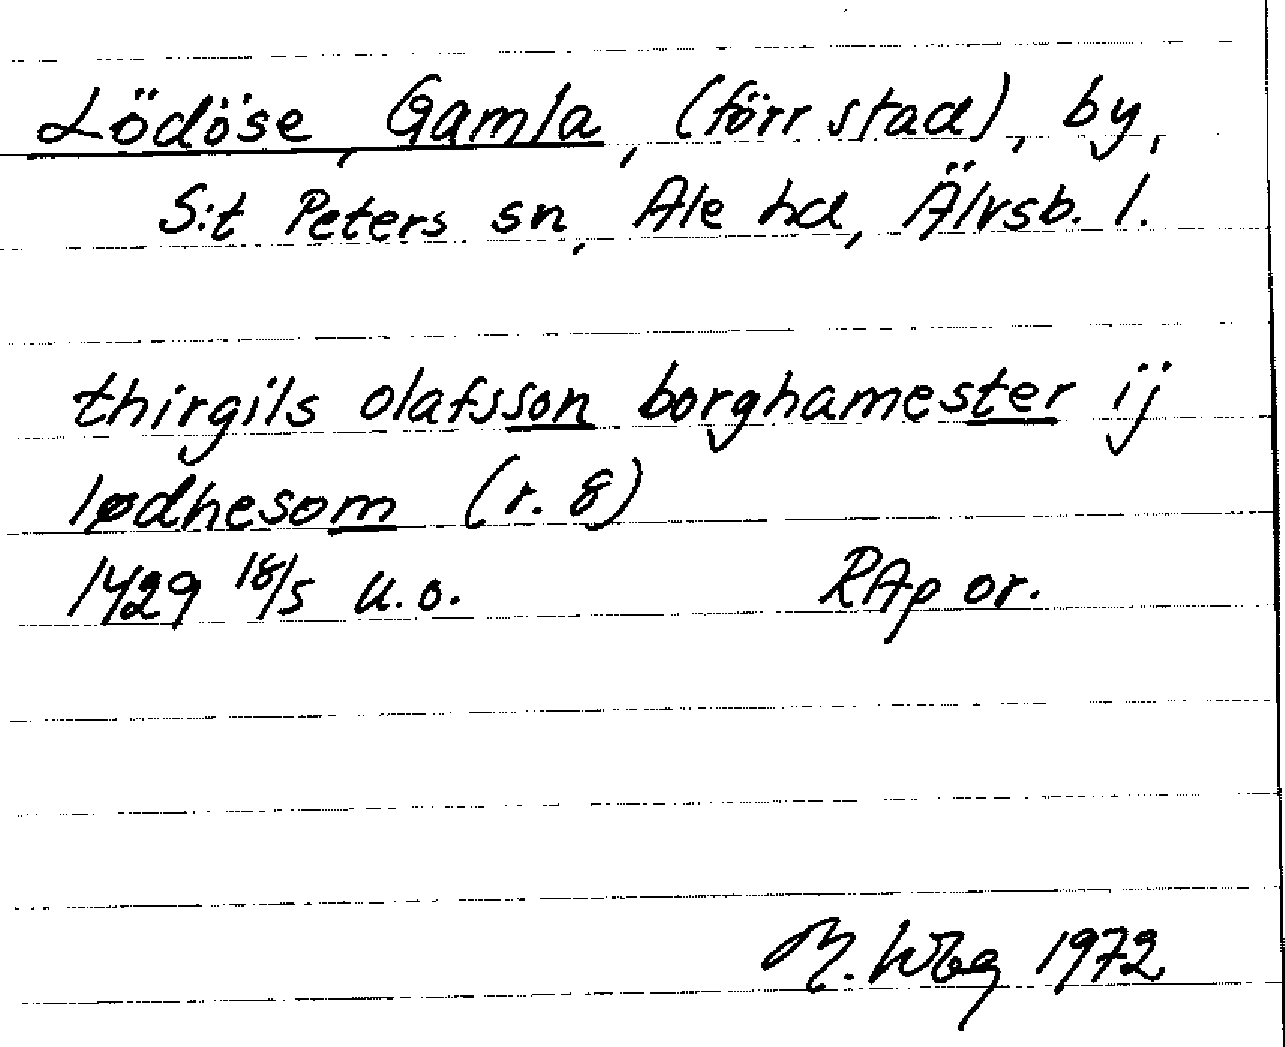 Lödöse, Gamla, (förr stad), by,
S:t Peters sn, Ale hd, Älvsb. l.
thirgils olafsson borghamester ij
lødhesom (r. 8)
1429 18/5 u.o. RAp or.
M. Wbg 1972